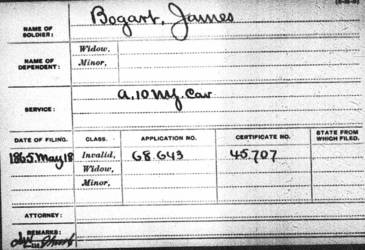 NAME OF SOLDIER: Bogart, James
NAME OF DEPENDENT: Widow,
Minor,
SERVICE: A. 10 N.Y. Cav
DATE OF FILING. CLASS. APPLICATION NO. CERTIFICATE NO. STATE FROM WHICH FILED.
1865. May 18 Invalid, 68.643 45.707
Widow,
Minor,
ATTORNEY:
REMARKS: